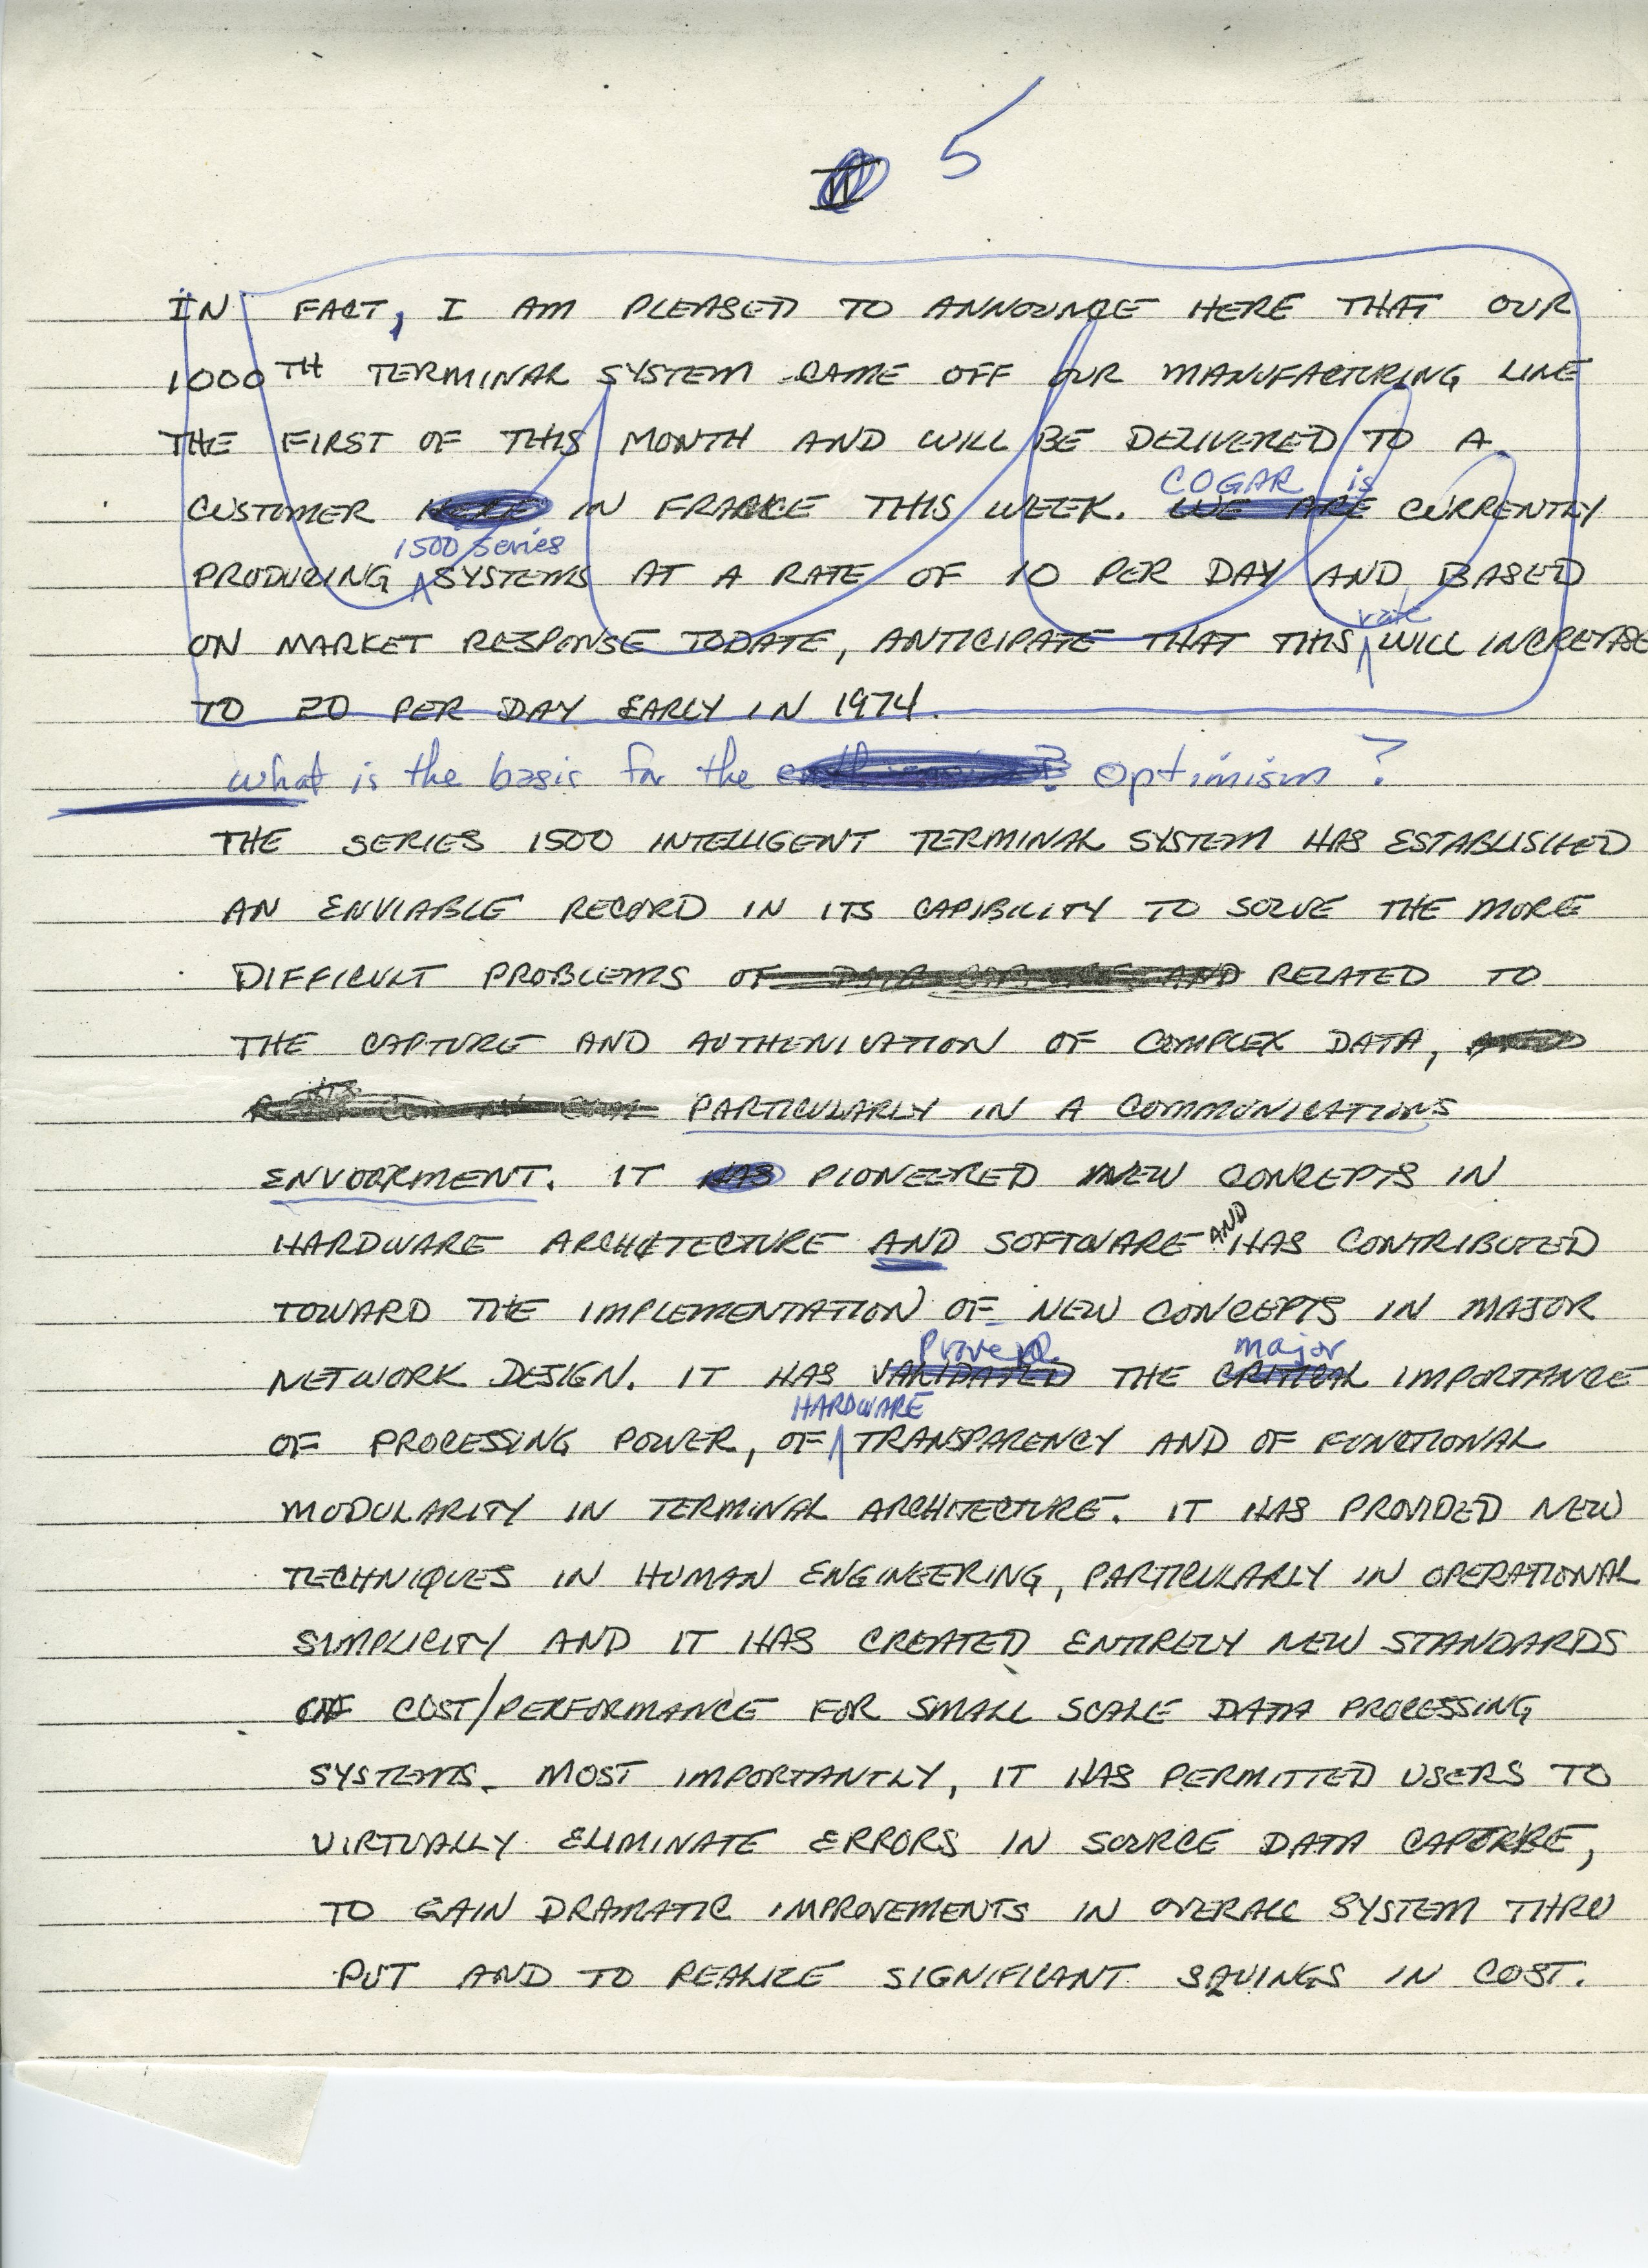 5
IN FACT, I AM PLEASED TO ANNOUNCE HERE THAT OUR
1000TH TERMINAL SYSTEM CAME OFF OUR MANUFACTURING LINE
THE FIRST OF THIS MONTH AND WILL BE DELIVERED TO A
COGAR is
CUSTOMER HERE IN FRANCE THIS WEEK. WE ARE CURRENTLY
1500 Series
PRODUCING SYSTEMS AT A RATE OF 10 PER DAY AND BASED
rate
ON MARKET RESPONSE TODATE, ANTICIPATE THAT THIS WILL INCREASE
TO 20 PER DAY EARLY IN 1974.
what is the basis for the optimism?
THE SERIES 1500 INTELLIGENT TERMINAL SYSTEM HAS ESTABLISHED
AN ENVIABLE RECORD IN ITS CAPIBILITY TO SOLVE THE MORE
DIFFICULT PROBLEMS OF DATA CAPTURE AND RELATED TO
THE CAPTURE AND AUTHENICATION OF COMPLEX DATA,
PARTICULARLY IN A COMMUNICATIONS
ENVOIRMENT. IT HAS PIONEERED NEW CONCEPTS IN
AND
HARDWARE ARCHITECTURE AND SOFTWARE HAS CONTRIBUTED
TOWARD THE IMPLEMENTATION OF NEW CONCEPTS IN MAJOR
Proved major
NETWORK DESIGN. IT HAS VALIDATED THE CRITICAL IMPORTANCE
HARDWARE
OF PROCESSING POWER, OF TRANSPARENCY AND OF FUNCTIONAL
MODULARITY IN TERMINAL ARCHITECTURE. IT HAS PROVIDED NEW
TECHNIQUES IN HUMAN ENGINEERING, PARTICULARLY IN OPERATIONAL
SIMPLICITY AND IT HAS CREATED ENTIRELY NEW STANDARDS
OF COST/PERFORMANCE FOR SMALL SCALE DATA PROCESSING
SYSTEMS. MOST IMPORTANTLY, IT HAS PERMITTED USERS TO
VIRTUALLY ELIMINATE ERRORS IN SOURCE DATA CAPTURE,
TO GAIN DRAMATIC IMPROVEMENTS IN OVERALL SYSTEM THRU
PUT AND TO REALIZE SIGNIFICANT SAVINGS IN COST.